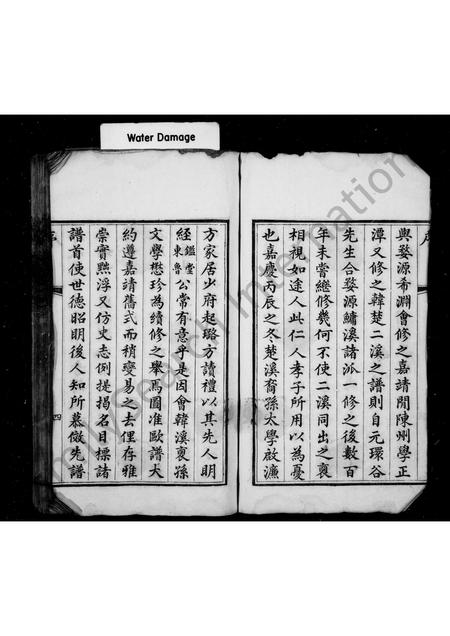 Water Damage
序
與婺源希淵會修之嘉靖閒陳州學正
潭又修之韓楚二溪之譜則自元環谷
先生合婺源鱅溪諸派一修之後數百
年未嘗繼修幾何不使二溪同出之裔
相視如途人此仁人孝子所用以為憂
也嘉慶丙辰之冬楚溪裔孫太學啟濂
方家居少府起璐方讀禮以其先人明
經鑑堂東魯公常有意乎是因會韓溪裔孫
文學懋珍為續修之舉焉圖准歐譜大
約遵嘉靖舊式而稍變易之去俚存雅
崇實黜浮又仿史志例提揭名目標諸
譜首使世德昭明後人知所慕微先譜
四
FamilySearch International